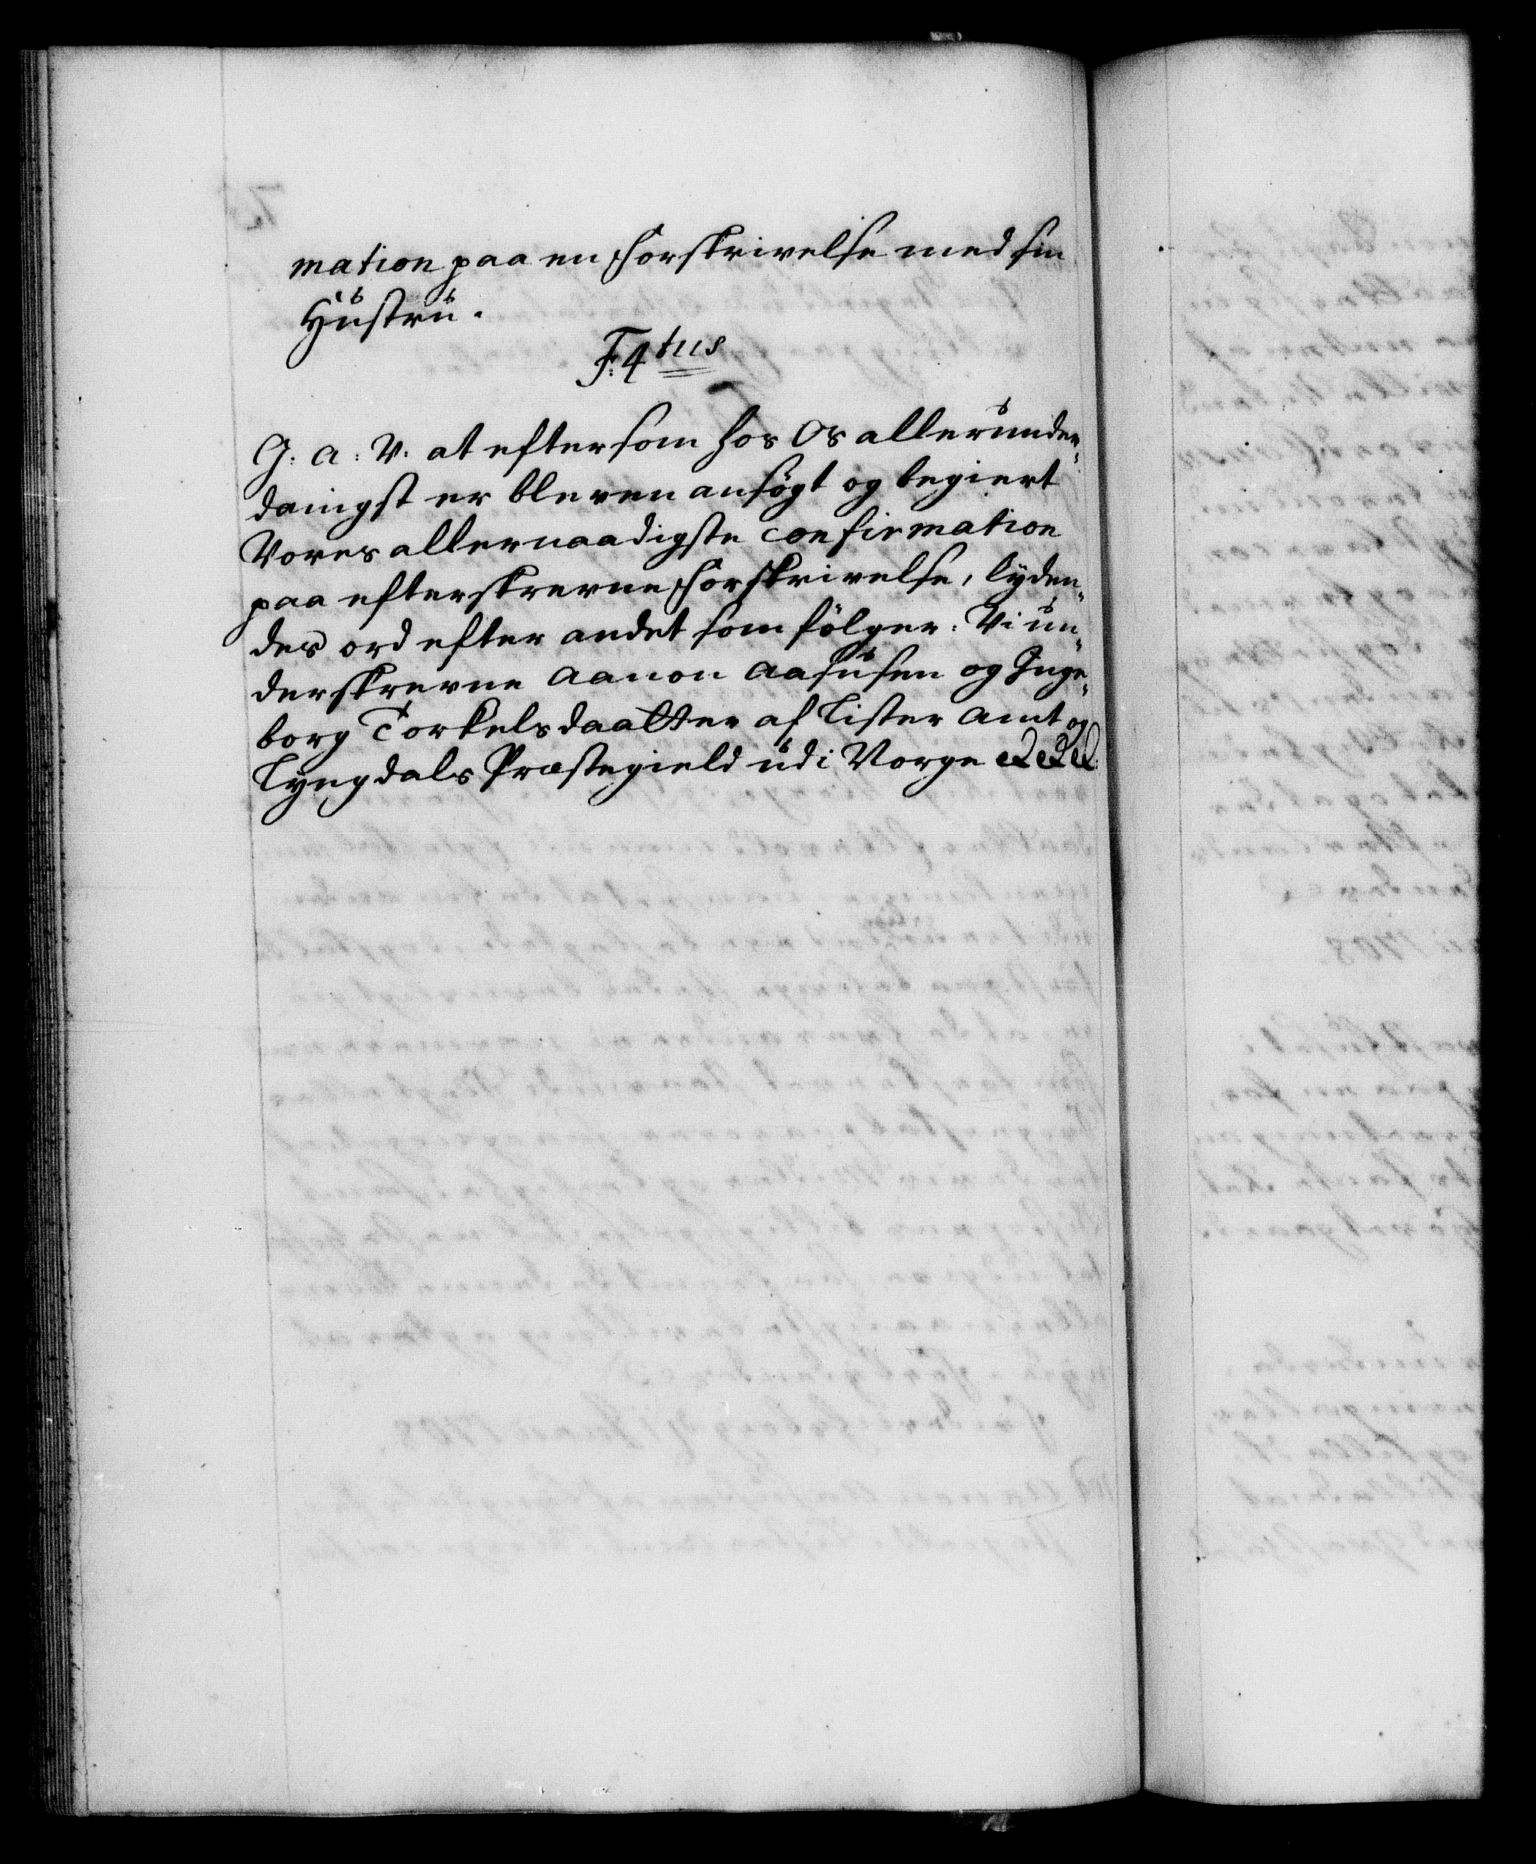 mation paa en Forskrivelse med sin
Hustru.
F. 4tus
G: A: V: at eftersom hos Os allerunder-
danigst er bleven ansøgt og begiert
Vores allernaadigste Confirmation
paa efterskrevne Forskrivelse, lyden-
des ord efter andet som følger: Vi un-
derskrevne Aanon Aasusen og Inge-
borg Torkelsdaatter af Lister Amt og
Lyngdals Præstegield udi Norge &c &c &c.